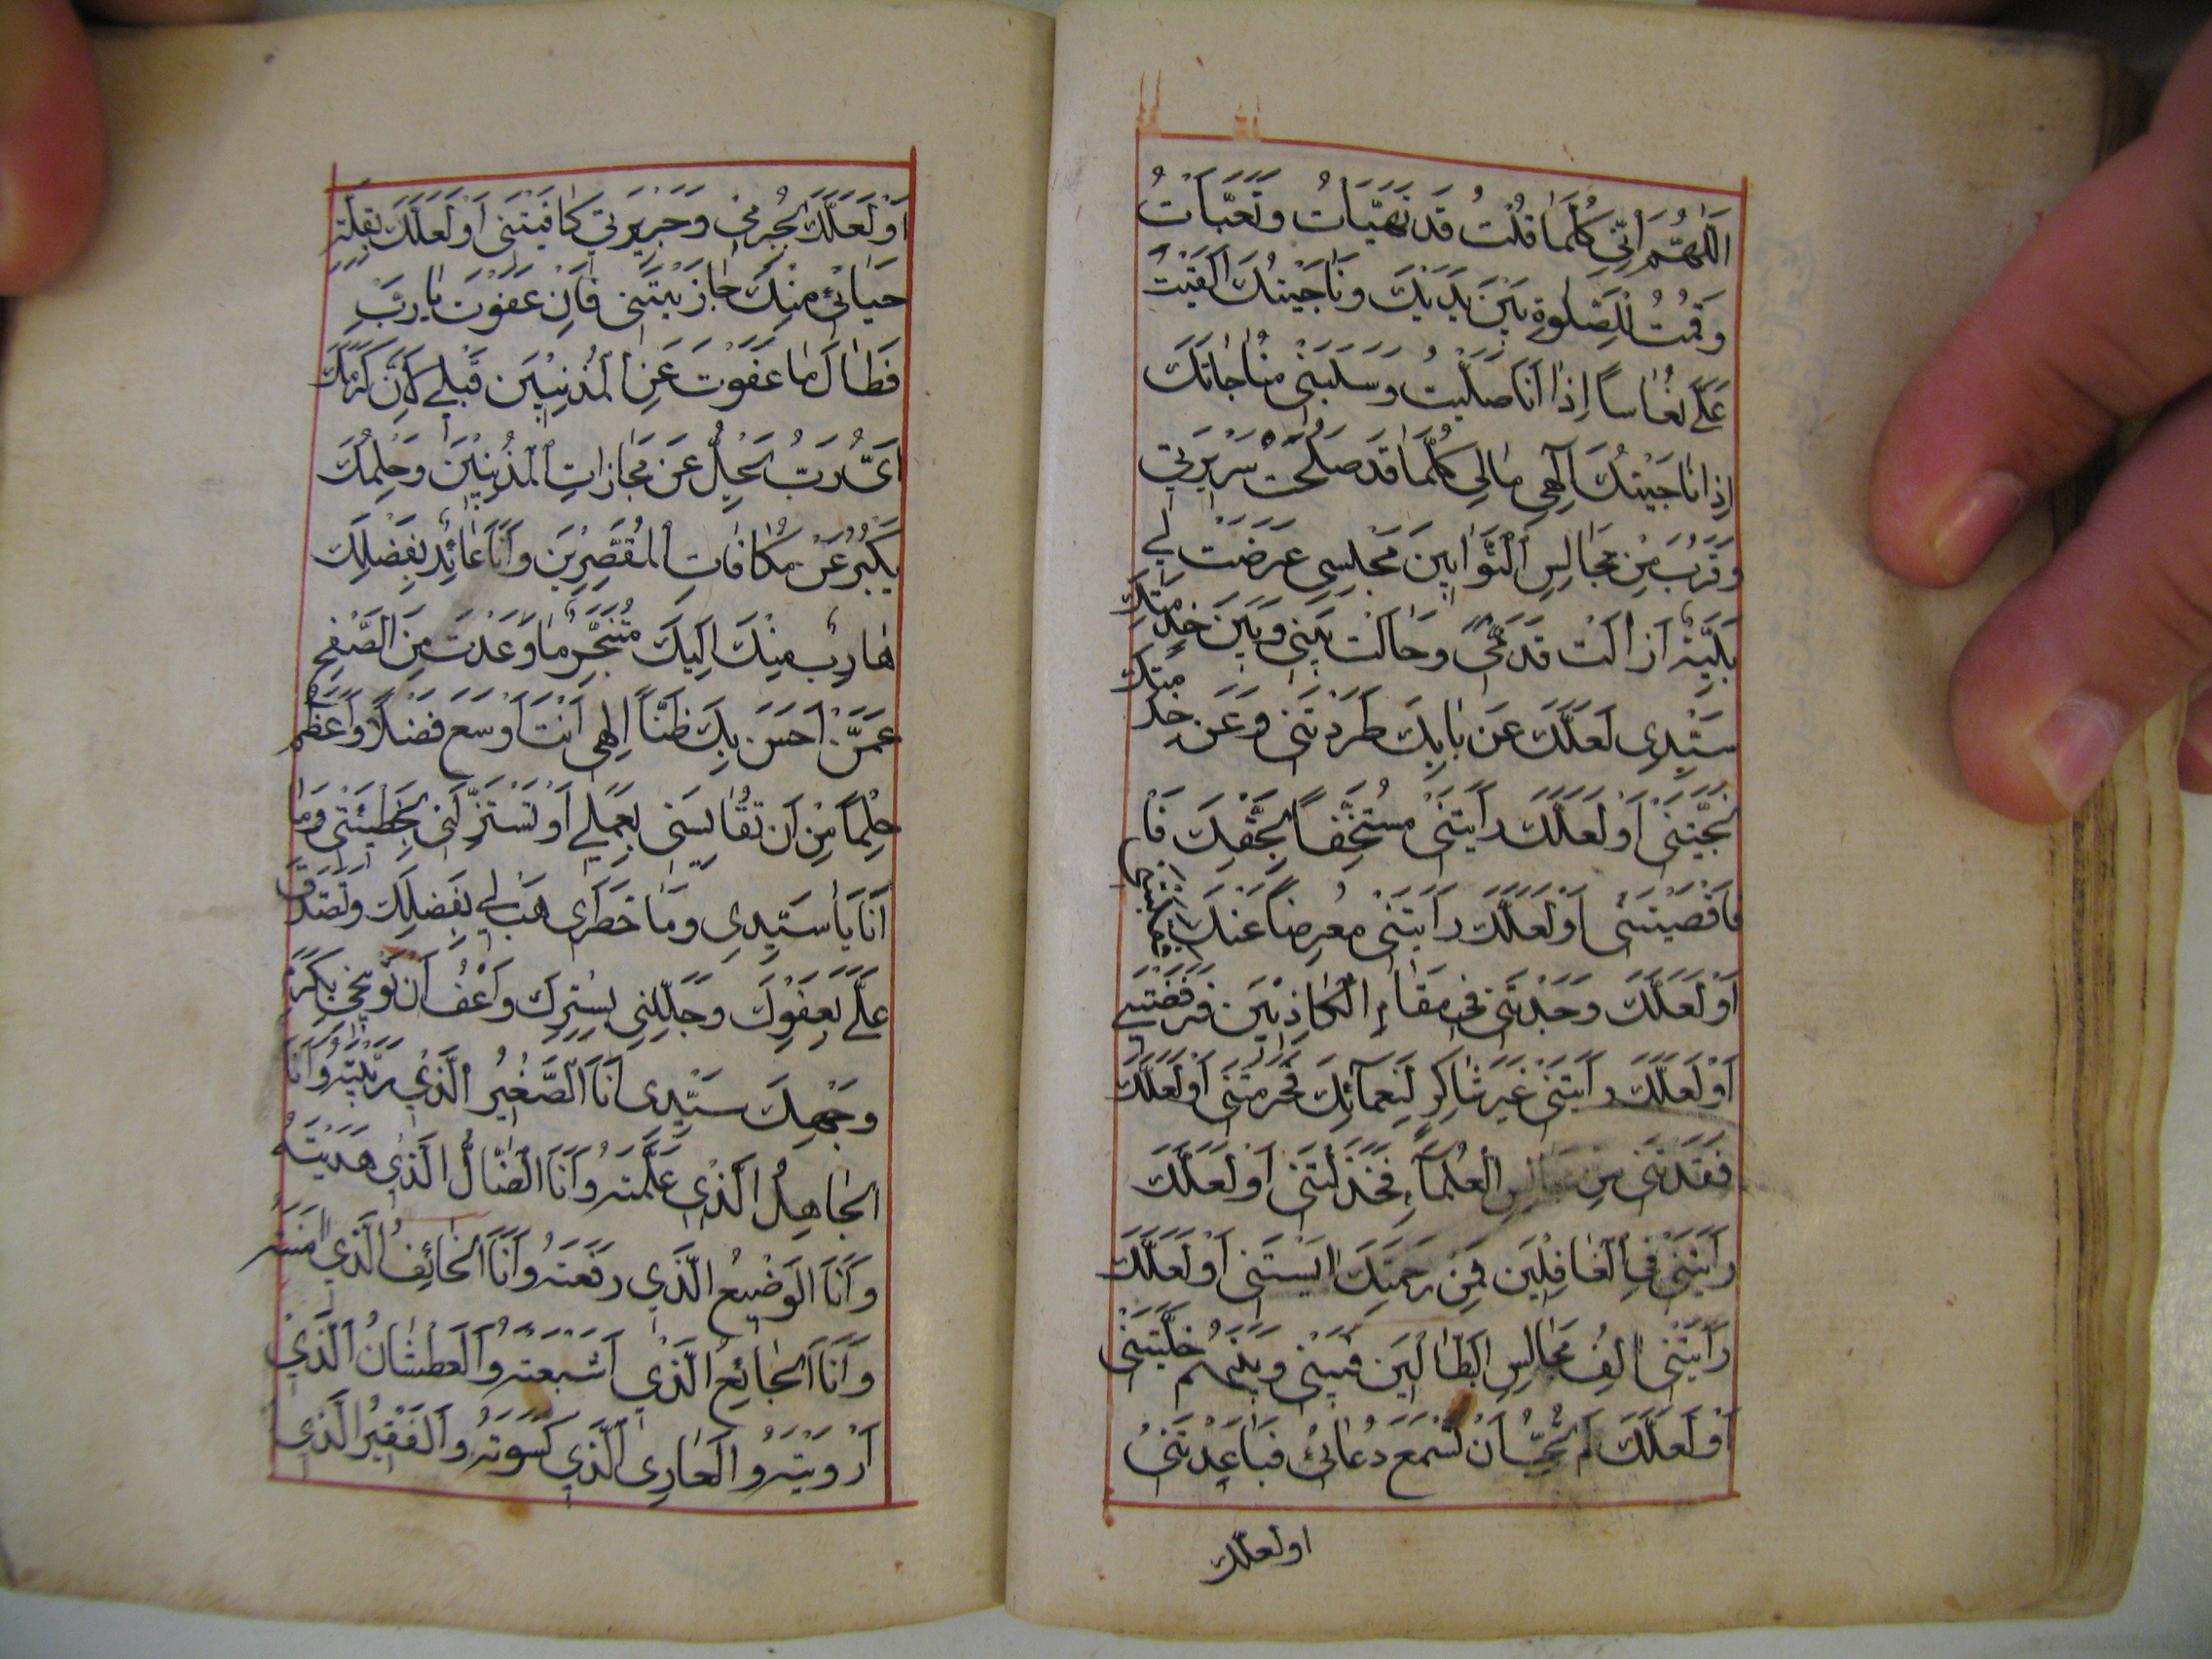 اَللّٰهُمَّ اِنّي كُلَّمٰا قُلْتُ قَد تَهَيَّاتُ وَتَعَبَّاتُ
وَقُمْتُ لِلصَّلٰوةِ بَيْنَ يَدَيْكَ وَنٰاجَيْتُكَ اَلْقَيْتَ
عَلَيَّ نُعٰاساً اِذٰا اَنَا صَلَّيْتُ وَسَلَبْتَني مُنٰاجٰاتَكَ
اِذٰا نٰاجَيْتُكَ اِلٰهي مٰالي كُلَّمٰا قَد صَلُحَتْ سَريرَتي
وَقَرُبَ مِنْ مَجٰالِسِ التَّوّٰابينَ مَجْلِسي عَرَضَتْ لي
بَلِيَّةٌ اَزٰالَتْ قَدَمي وَحٰالَتْ بَيْني وَبَيْنَ خِدْمَتِكَ
سَيِّدي لَعَلَّكَ عَنْ بٰابِكَ طَرَدْتَني وَعَنْ خِدْمَتِكَ
نَحَّيْتَني اَوْ لَعَلَّكَ رَاَيْتَني مُسْتَخِفّاً بِحَقِّكَ فَا
فَاَقْصَيْتَني اَوْ لَعَلَّكَ رَاَيْتَني مُعْرِضاً عَنْكَ
اَوْ لَعَلَّكَ وَجَدْتَني في مَقٰامِ الْكٰاذِبينَ فَرَفَضْتَني
اَوْ لَعَلَّكَ رَاَيْتَني غَيْرَ شٰاكِرٍ لِنَعْمٰائِكَ فَحَرَمْتَني اَوْ لَعَلَّكَ
فَقَدْتَني مِنْ مَجٰالِسِ الْعُلَمٰاءِ فَخَذَلْتَني اَوْ لَعَلَّكَ
رَاَيْتَني فِي الْغٰافِلينَ فَمِنْ رَحْمَتِكَ اٰيَسْتَني اَوْ لَعَلَّكَ
رَاَيْتَني اٰلِفُ مَجٰالِسِ الْبَطّٰالينَ فَبَيْني وَبَيْنَهُمْ خَلَّيْتَني
اَوْ لَعَلَّكَ لَمْ تُحِبَّ اَنْ تَسْمَعَ دُعٰائي فَبٰاعَدْتَني
اولعلّك
اَوْ لَعَلَّكَ بِجُرْمي وَجَريرَتي كٰافَيْتَني اَوْ لَعَلَّكَ بِقِلَّةِ
حَيٰائي مِنْكَ جٰازَيْتَني فَاِنْ عَفَوْتَ يٰا رَبِّ
فَطٰالَ مٰا عَفَوْتَ عَنِ الْمُذْنِبينَ قَبْلي لِاَنَّ كَرَمَكَ
اَيْ رَبُّ يَجِلُّ عَنْ مَجٰازٰاتِ الْمُذْنِبينَ وَحِلْمُكَ
يَكْبُرُ عَنْ مُكٰافٰاتِ الْمُقَصِّرينَ وَاَنَا عٰائِذٌ بِفَضْلِكَ
هٰارِبٌ مِنْكَ اِلَيْكَ مُتَنَجِّزٌ مٰا وَعَدْتَ مِنَ الصَّفْحِ
عَمَّنْ اَحْسَنَ بِكَ ظَنّاً اِلٰهي اَنْتَ اَوْسَعُ فَضْلاً وَاَعْظَمُ
حِلْماً مِنْ اَنْ تُقٰايِسَني بِعَمَلي اَوْ تَسْتَزِلَّني بِخَطيئَتي وَمٰا
اَنَا يٰا سَيِّدي وَمٰا خَطَري هَبْ لي بِفَضْلِكَ وَتَصَدَّقْ
عَلَيَّ بِعَفْوِكَ وَجَلِّلْني بِسِتْرِكَ وَاعْفُ اَنْ تَوْبيخي بِكَرَمِ
وَجْهِكَ سَيِّدي اَنَا الصَّغيرُ الَّذي رَبَّيْتَهُ وَاَنَا
الْجٰاهِلُ الَّذي عَلَّمْتَهُ وَاَنَا الضّٰالُّ الَّذي هَدَيْتَهُ
وَاَنَا الْوَضيعُ الَّذي رَفَعْتَهُ وَاَنَا الْخٰائِفُ الَّذي اٰمَنْتَهُ
وَاَنَا الْجٰائِعُ الَّذي اَشْبَعْتَهُ وَالْعَطْشٰانُ الَّذي
اَرْوَيْتَهُ وَالْعٰاري الَّذي كَسَوْتَهُ وَالْفَقيرُ الَّذي